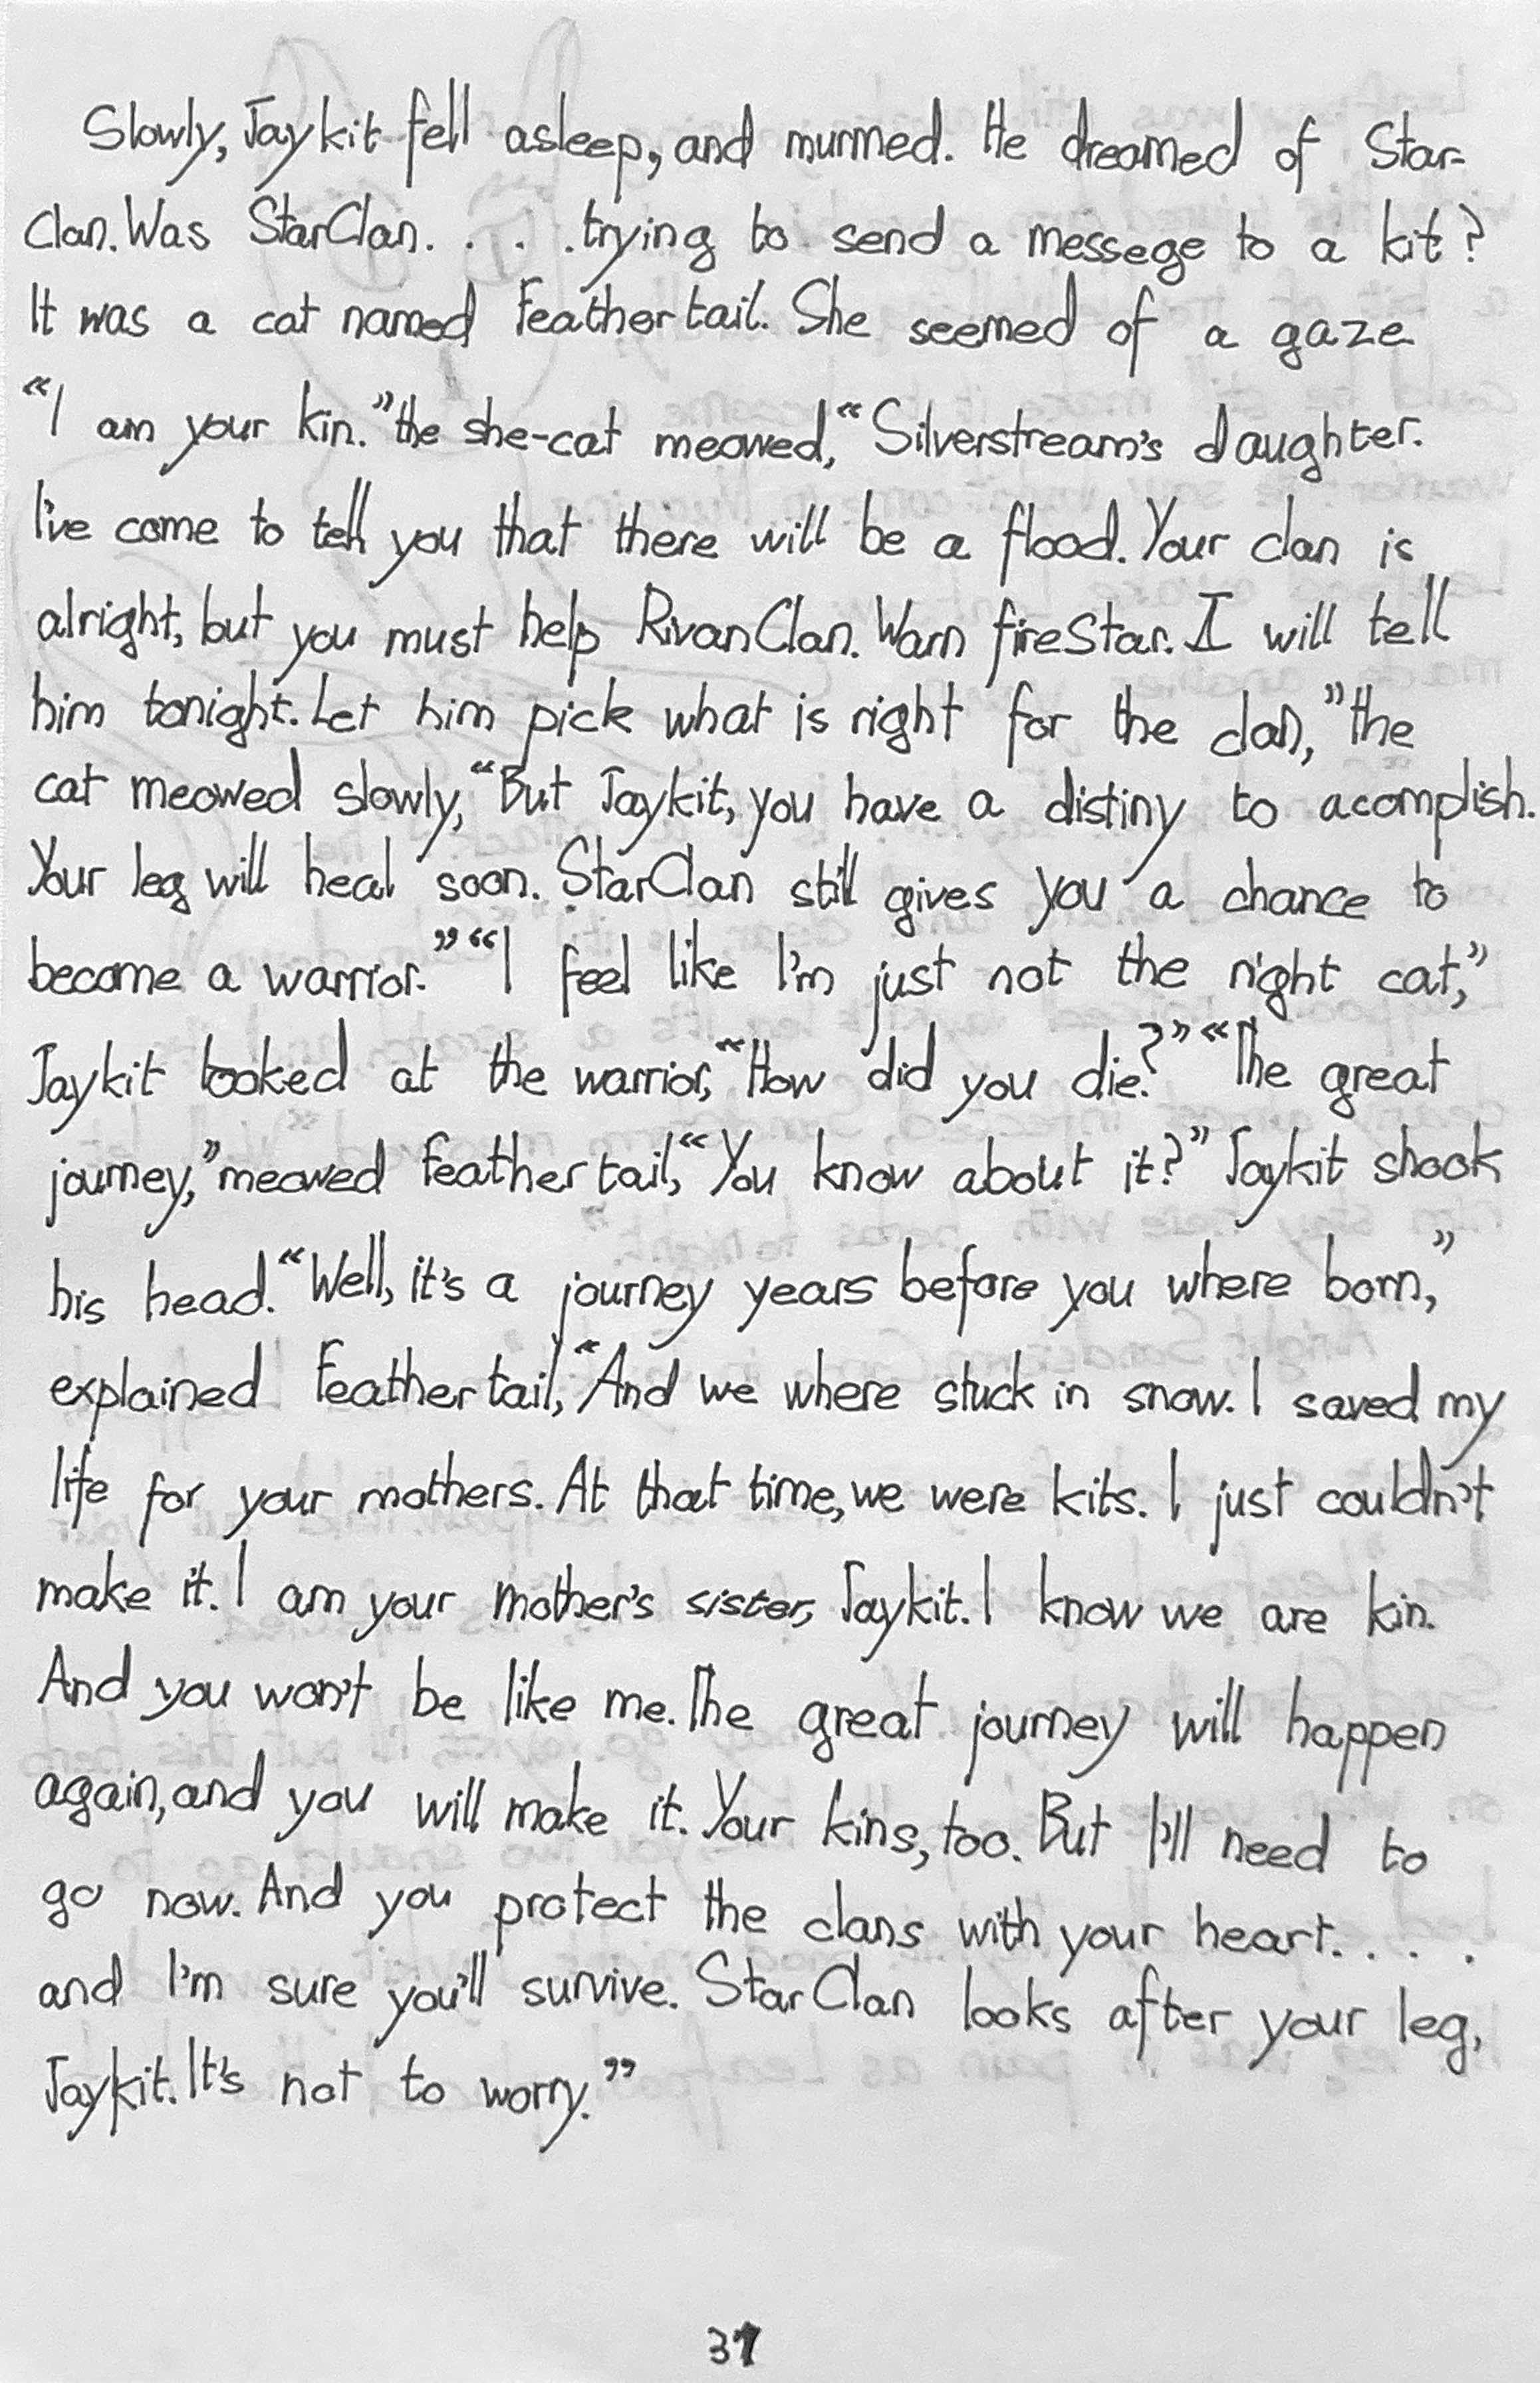 Slowly, Jaykit fell asleep, and murmed. He dreamed of Star-
Clan. Was StarClan. . . . trying to send a messege to a kit?
It was a cat named Feathertail. She seemed of a gaze
“I am your kin.” the she-cat meowed, “Silverstream's daughter.
I've come to tell you that there will be a flood. Your clan is
alright, but you must help RivanClan. Warn fireStar. I will tell
him tonight. Let him pick what is right for the clan,” the
cat meowed slowly, “But Jaykit, you have a distiny to acomplish.
Your leg will heal soon. StarClan still gives you a chance to
become a warrior.” “I feel like I'm just not the right cat,”
Jaykit looked at the warrior, “How did you die?” “The great
journey,” meowed Feathertail, “You know about it?” Jaykit shook
his head. “Well, it's a journey years before you where born,”
explained Feathertail, “And we where stuck in snow. I saved my
life for your mothers. At that time, we were kits. I just couldn't
make it. I am your mother's sister, Jaykit. I know we are kin.
And you won't be like me. The great journey will happen
again, and you will make it. Your kins, too. But I'll need to
go now. And you protect the clans with your heart. . . .
and I'm sure you'll survive. StarClan looks after your leg,
Jaykit. It's not to worry.”